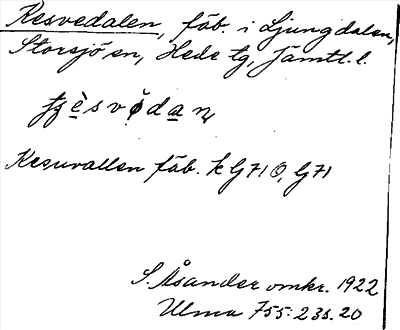 Kesvedalen, fäb. i Ljungdalen,
Storsjö sn, Hede tg, Jämtl. l.
Kesuvallen fäb. k G71 O, G71
S. Åsander omkr. 1922
Ulma 755: 23s. 20